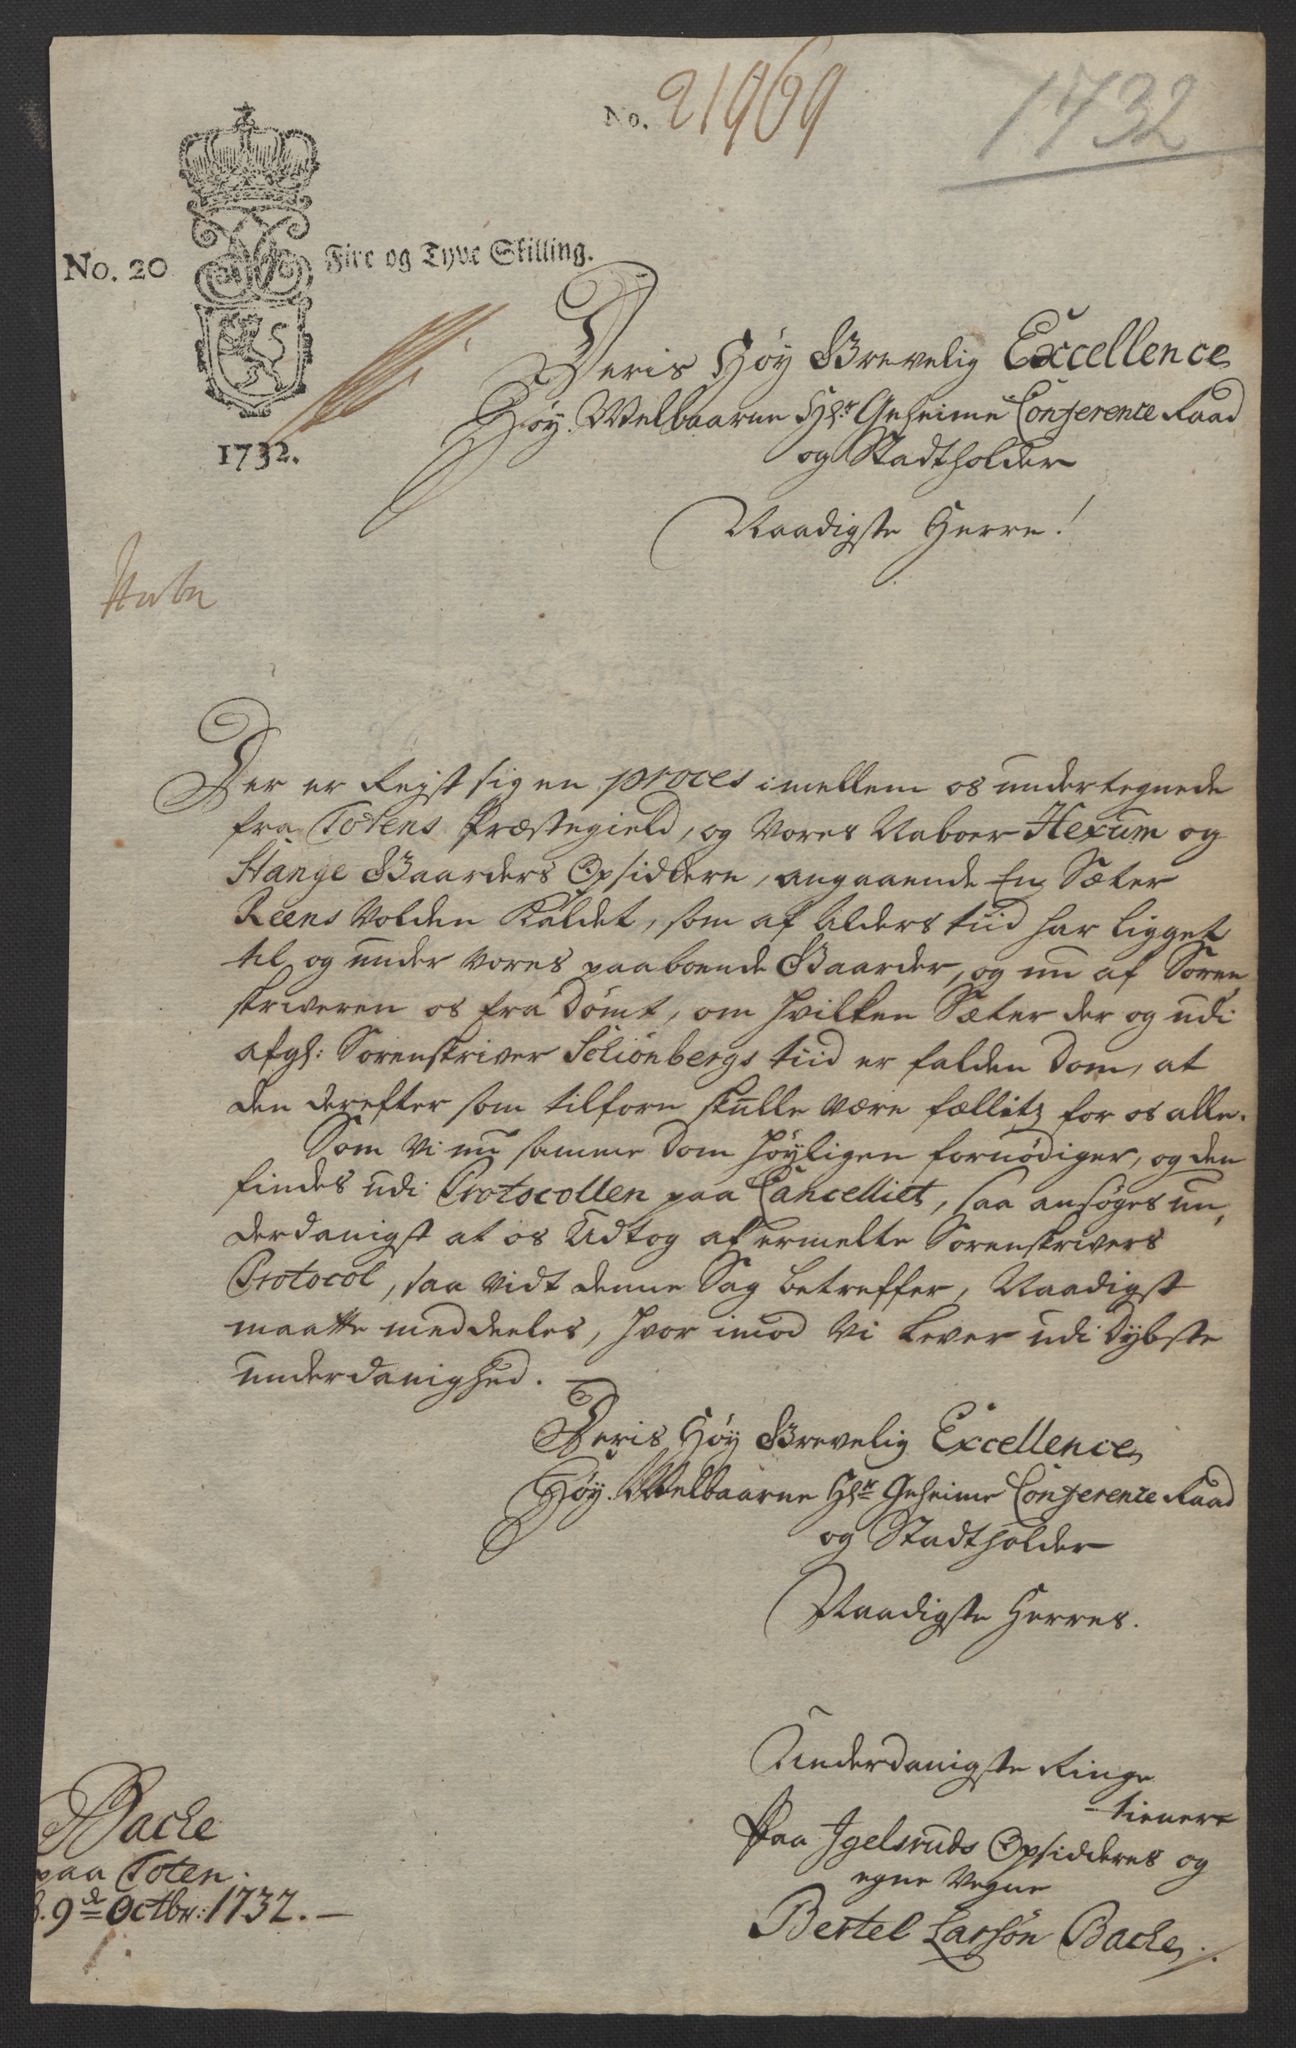 No. 21969
1732
No. 20
Fire og Tyve Skilling.
1732.
Deris Høy Grevelig Excellence
Høy Welbaarne Hr. Geheime Conference Raad
og Stadtholder
Naadigste Herre!
Der er Reyst sig en proces imellem os undertegnede
fra Totens Præstegield, og Vores Naboer Hexum og
Stange Gaarders Opsiddere, angaaende En Sæter
Reens Volden Kaldet, som af Alders tiid har ligget
til og under vores paaboende Gaarder, og nu af Soren
skriveren os fra Dømt, om hvilken Sæter der og udi
afgh: Sorenskriver Schiønbergs tiid er falden Dom, at
den derefter som tilforn skulle være fællitz for os alle.
Som Vi nu samme Dom høyligen fornødiger, og den
findes udi Protocollen paa Cancelliet, saa ansøges un,
derdanigst at os Udtog af ermelte Sorenskrivers
Protocol, saa vidt denne Sag betreffer, Naadigst
maatte meddeeles, hvor imod Vi lever udi Dÿbste
underdanighed.
Deris Høy Grevelig Excellence
Høy Welbaarne Hr. Geheime Conference Raad
og Stadtholder
Naadigste Herres.
Underdanigste Ringe
tienere
Paa Igelsruds Opsidderes og
egne Vegne
Bertel Larsøn Backe
Backe
paa Toten.
d. 9de Octbr: 1732.